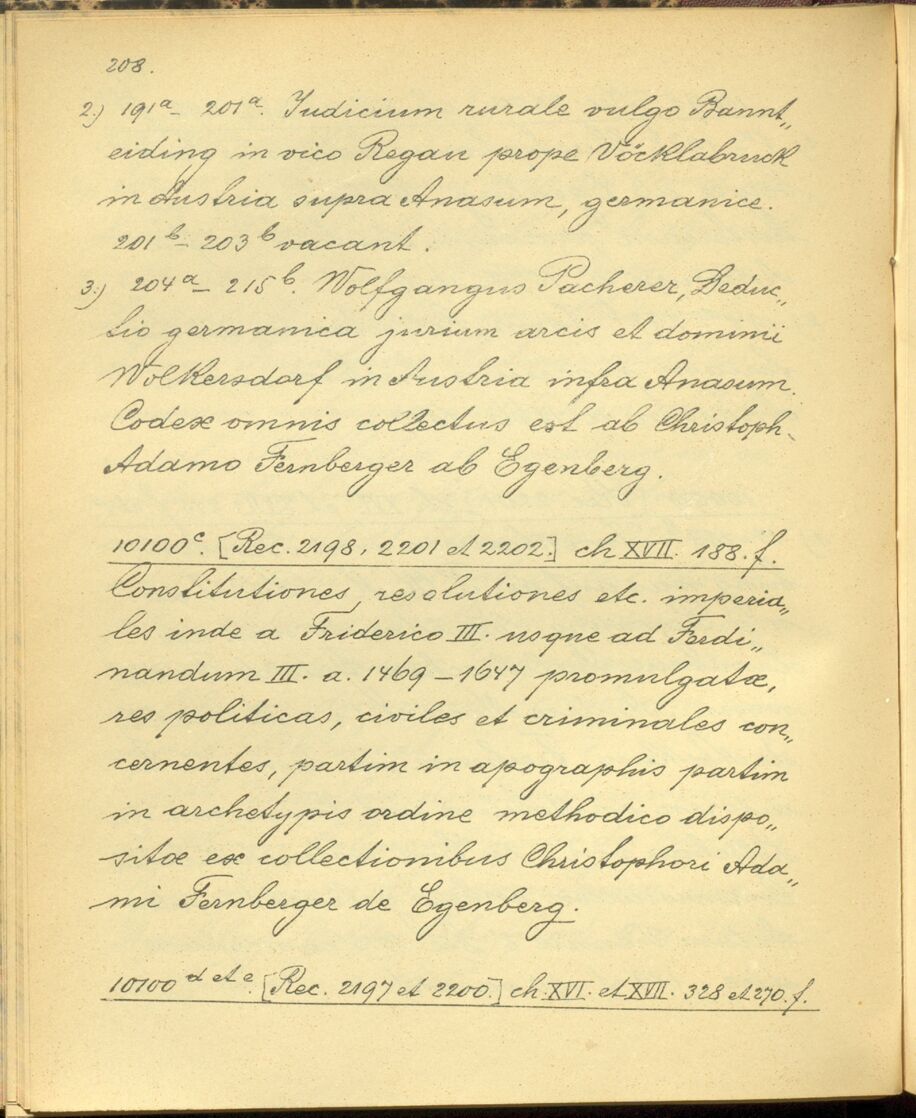 208.
2.) 191a – 201a. Iudicium rurale vulgo Bannt„
eiding in vico Regau prope Vöcklabruck
in Austria supra Anasum, germanice.
201b – 203b vacant.
3.) 204a – 215b. Wolfgangus Pacherer, Deduc„
tio germanica jurium arcis et dominii
Wolkersdorf in Austria infra Anasum.
Codex omnis collectus est ab Christoph-
Adamo Fernberger ab Egenberg.
10100c. [Rec. 2198, 2201 et 2202.] ch XVII. 188. f.
Constitutiones, resolutiones etc. imperia„
les inde a Friderico III. usque ad Ferdi„
nandum III. a. 1469 – 1647 promulgatæ,
res politicas, civiles et criminales con„
cernentes, partim in apographis partim
in archetypis ordine methodico dispo„
sitæ ex collectionibus Christophori Ada„
mi Fernberger de Egenberg.
10100d et e. [Rec. 2197 et 2200.] ch. XVI. et XVII. 328 et 270. f.